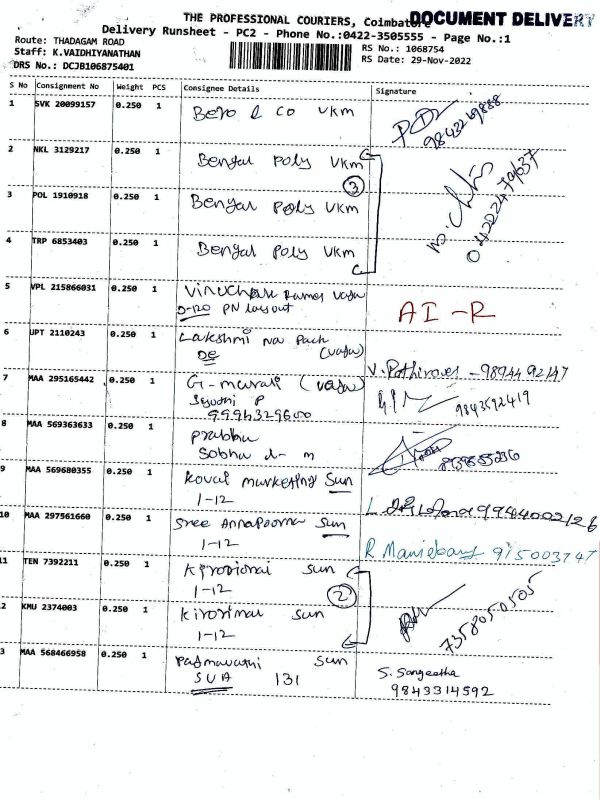 THE PROFESSIONAL COURIERS, Coimbatore
DOCUMENT DELIVERY
Delivery Runsheet - PC2 - Phone No.:0422-3505555 - Page No.:1
Route: THADAGAM ROAD
RS No.: 1068754
Staff: K.VAIDHIYANATHAN
RS Date: 29-Nov-2022
DRS No.: DCJB106875401
S No Consignment No Weight PCS Consignee Details Signature
1 SVK 20099157 0.250 1 Boro & Co VKm
9843249888
2 NKL 3129217 0.250 1 Bengal Poly VKm
3
3 POL 1910918 0.250 1 Bengal Poly VKm
4 TRP 6853403 0.250 1 Bengal Poly VKm
5 VPL 215866031 0.250 1
D-120 PN layout
AI-R
6 UPT 2110243 0.250 1 Lakshmi Na Pack
DE (vasu)
9894492147
7 MAA 295165442 0.250 1 G-murali (vasu)
P
9843592419
8 MAA 569363633 0.250 1 Prabhu
Sobha d- m
9 MAA 569680355 0.250 1 Kovai marketing Sun
1-12
10 MAA 297561660 0.250 1 Sree Annapoorna Sun
1-12
11 TEN 7392211 0.250 1 Sun
1-12
2
12 KMU 2374003 0.250 1 Sun
1-12
7358050505
13 MAA 568466958 0.250 1 Padmavathi Sun
SUA 131
S. Sangeetha
9843314592